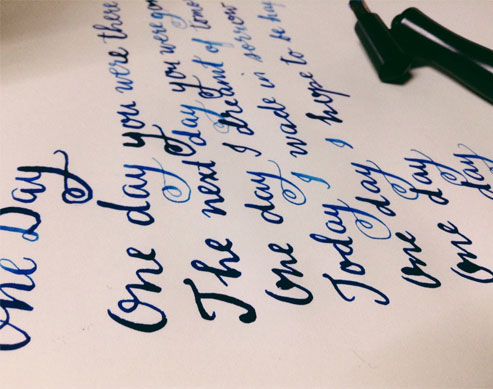 One Day
One day you were there
The next day you were gon
One day I dreamt of tomo
Today I wade in sorrow
one day I hope to be hap
one day